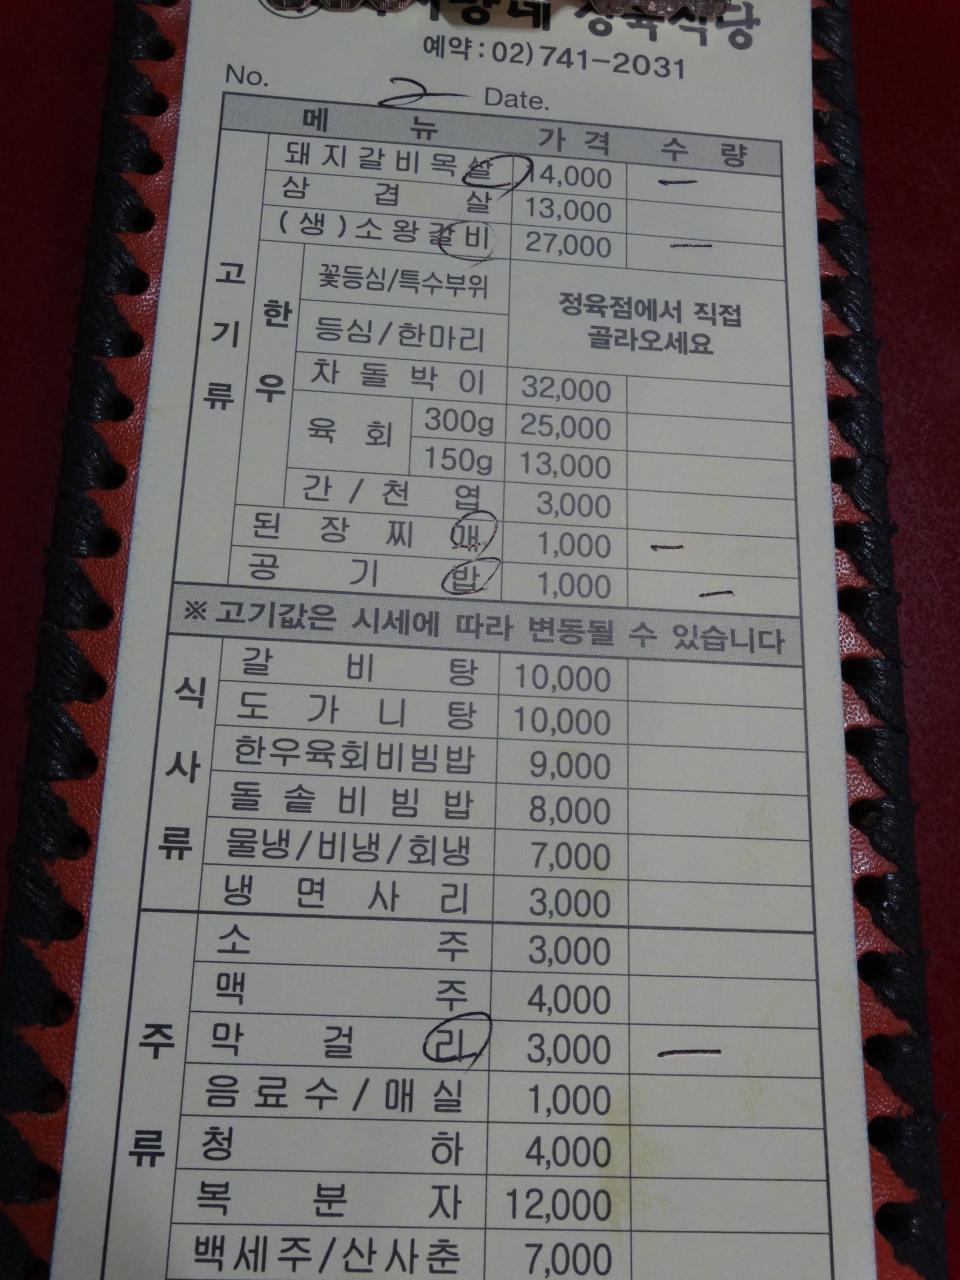 정육식당
예약 : 02) 741-2031
No. 2 Date.
메 뉴 가 격 수 량
고기류
돼지갈비목살 14,000 —
삼 겹 살 13,000
(생)소왕갈비 27,000 —
한우
꽃등심/특수부위
등심/한마리
정육점에서 직접
골라오세요
차 돌 박 이 32,000
육 회 300g 25,000
150g 13,000
간 / 천 엽 3,000
된 장 찌 개 1,000 —
공 기 밥 1,000 —
※ 고기값은 시세에 따라 변동될 수 있습니다
식사류
갈 비 탕 10,000
도 가 니 탕 10,000
한우육회비빔밥 9,000
돌 솥 비 빔 밥 8,000
물냉/비냉/회냉 7,000
냉 면 사 리 3,000
주류
소 주 3,000
맥 주 4,000
막 걸 리 3,000 —
음 료 수 / 매 실 1,000
청 하 4,000
복 분 자 12,000
백세주/산사춘 7,000